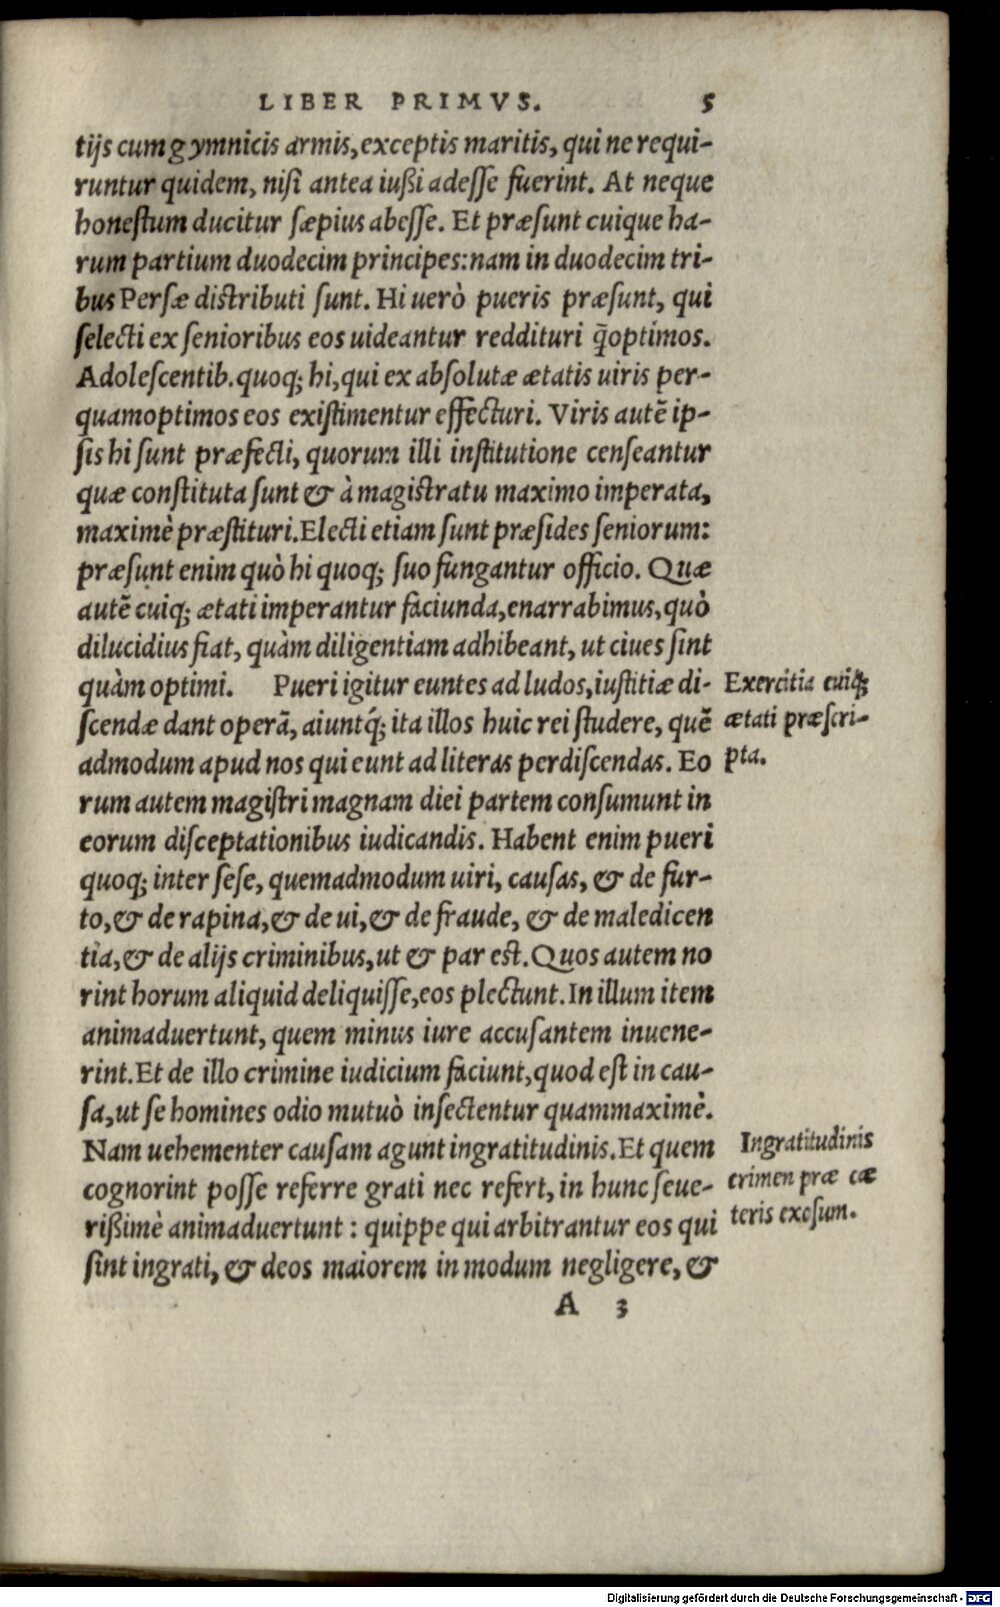 LIBER PRIMVS. 5
tijs cum gymnicis armis, exceptis maritis, qui ne requi-
runtur quidem, nisi antea iußi adesse fuerint. At neque
honestum ducitur sæpius abesse. Et præsunt cuique ha-
rum partium duodecim principes: nam in duodecim tri-
bus Persæ distributi sunt. Hi uerò pueris præsunt, qui
selecti ex senioribus eos uideantur reddituri q̃optimos.
Adolescentib. quoq; hi, qui ex absolutæ ætatis uiris per-
quamoptimos eos existimentur effecturi. Viris autẽ ip-
sis hi sunt præfecti, quorum illi institutione censeantur
quæ constituta sunt & à magistratu maximo imperata,
maximè præstituri. Electi etiam sunt præsides seniorum:
præsunt enim quò hi quoq; suo fungantur officio. Quæ
autẽ cuiq; ætati imperantur faciunda, enarrabimus, quò
dilucidius fiat, quàm diligentiam adhibeant, ut ciues sint
quàm optimi. Pueri igitur euntes ad ludos, iustitiæ di-
scendæ dant operã, aiuntq́; ita illos huic rei studere, quẽ
admodum apud nos qui eunt ad literas perdiscendas. Eo
rum autem magistri magnam diei partem consumunt in
eorum disceptationibus iudicandis. Habent enim pueri
quoq; inter sese, quemadmodum uiri, causas, & de fur-
to, & de rapina, & de ui, & de fraude, & de maledicen
tia, & de alijs criminibus, ut & par est. Quos autem no
rint horum aliquid deliquisse, eos plectunt. In illum item
animaduertunt, quem minus iure accusantem inuene-
rint. Et de illo crimine iudicium faciunt, quod est in cau-
sa, ut se homines odio mutuò insectentur quammaximè.
Nam uehementer causam agunt ingratitudinis. Et quem
cognorint posse referre grati nec refert, in hunc seue-
rißimè animaduertunt : quippe qui arbitrantur eos qui
sint ingrati, & deos maiorem in modum negligere, &
A 3
Exercitia cuiq;
ætati præscri-
pta.
Ingratitudinis
crimen præ cæ
teris exosum.
Digitalisierung gefördert durch die Deutsche Forschungsgemeinschaft - DFG